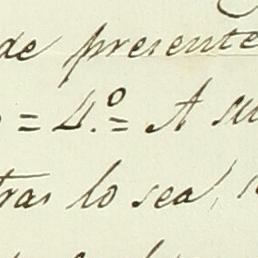 de presente
= 4.º = A su
tras lo sea,